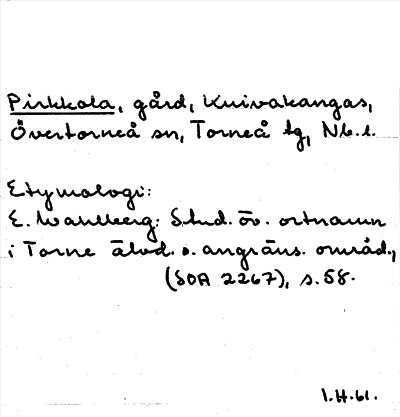 Pirkkola, gård, Kuivakangas,
Övertorneå sn, Torneå tg, Nb. l.
Etymologi:
E. Wahlberg: Stud. öv. ortnamn
i Torne älvd. o. angräns. områd.,
(SOA 2267), s. 58.
I.H. 61.